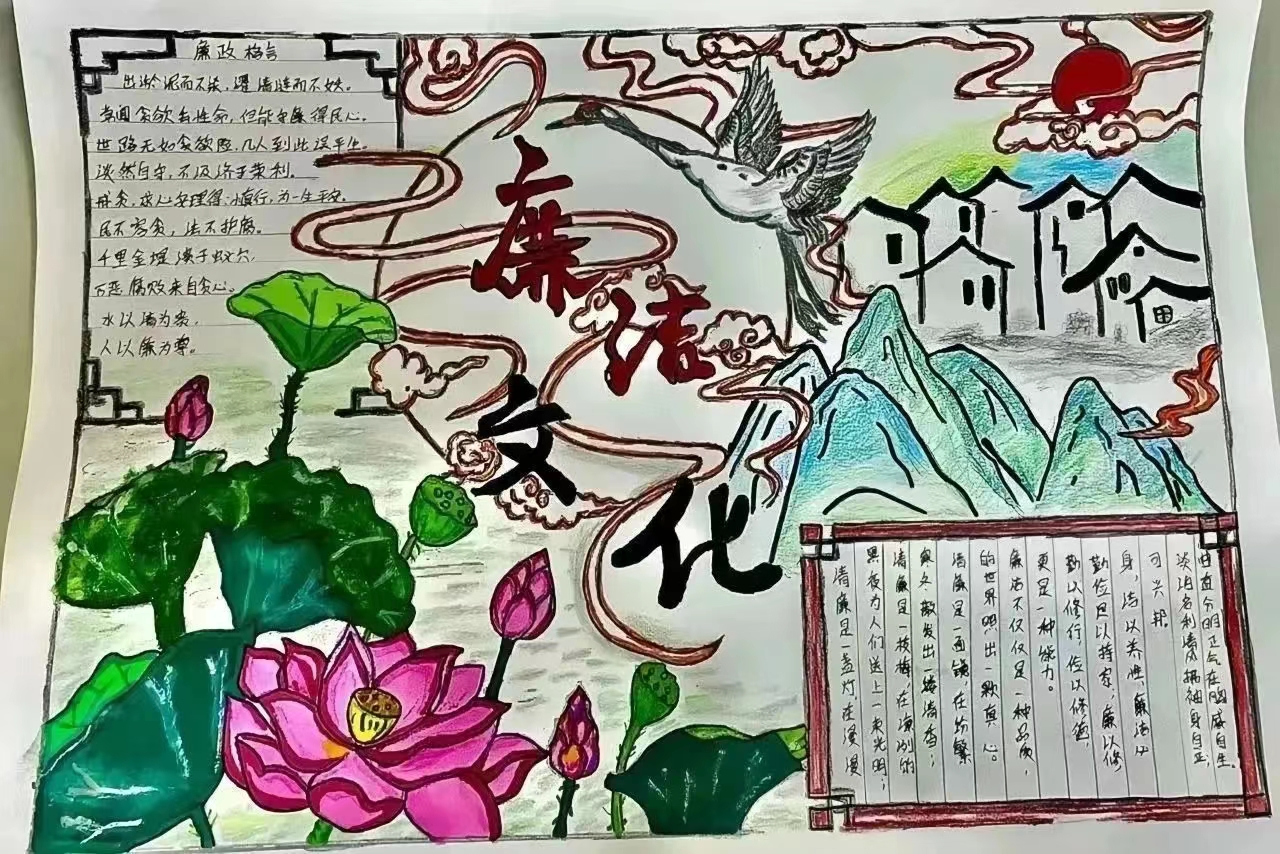 廉政格言
出淤泥而不染，濯清涟而不妖。
常闻贪欲害性命，但能守廉得民心。
世路无如贪欲险，几人到此误平生。
淡然自守，不汲于荣利。
贪，求心安理得，慎行，为一生平安。
民不容贪，法不护腐。
千里金堤溃于蚁穴，
万恶腐败来自贪心。
水以清为贵，
人以廉为尊。
廉洁
文化
清廉是一盏灯在漫漫
黑夜为人们送上一束光明；
清廉是一枝梅，在凛冽的
寒冬散发出一缕清香；
清廉是一面镜，在纷繁
的世界照出一颗真心。
廉洁不仅仅是一种品质，
更是一种能力。
勤以修行，俭以修德，
勤俭足以持家，廉以修
身，洁以养性，廉洁必
可兴邦。
淡泊名利清风拂袖身自正；
曲直分明正气在胸威自生。